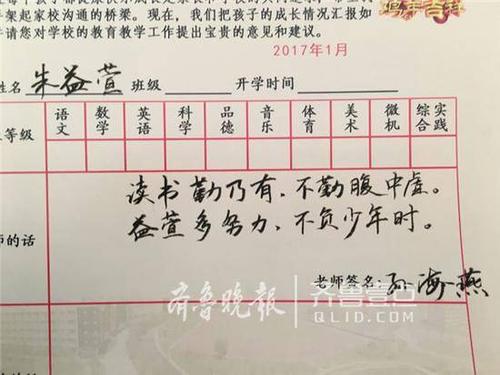 架起家校沟通的桥梁。现在,我们把孩子的成长情况汇报如
请您对学校的教育教学工作提出宝贵的意见和建议。
鸡年吉祥
2017年1月
姓名 朱益萱 班级 开学时间
等级 语文 数学 英语 科学 品德 音乐 体育 美术 微机 综合实践
师的话
读书勤乃有,不勤腹中虚。
益萱多努力,不负少年时。
老师签名:孙海燕
齐鲁晚报 齐鲁壹点
QLID.COM